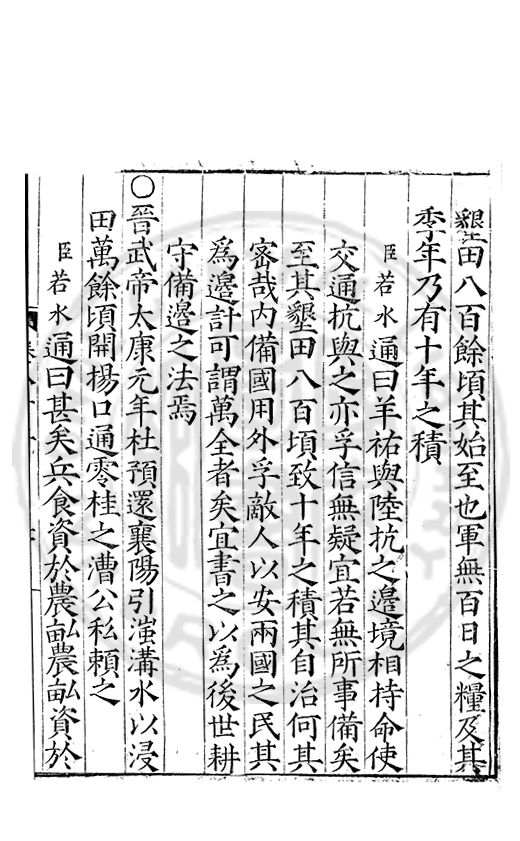 墾田八百餘頃其始至也軍無百日之糧及其
季年乃有十年之積
臣若水通曰羊祜與陸抗之邊境相持命使
交通抗與之亦孚信無疑宜若無所事備矣
至其墾田八百頃致十年之積其自治何其
密哉内備國用外孚敵人以安兩國之民其
爲邊計可謂萬全者矣宜書之以爲後世耕
守備邊之法焉
○晉武帝太康元年杜預還襄陽引滍淯水以浸
田萬餘頃開揚口通零桂之漕公私賴之
臣若水通曰甚矣兵食資於農畆農畆資於